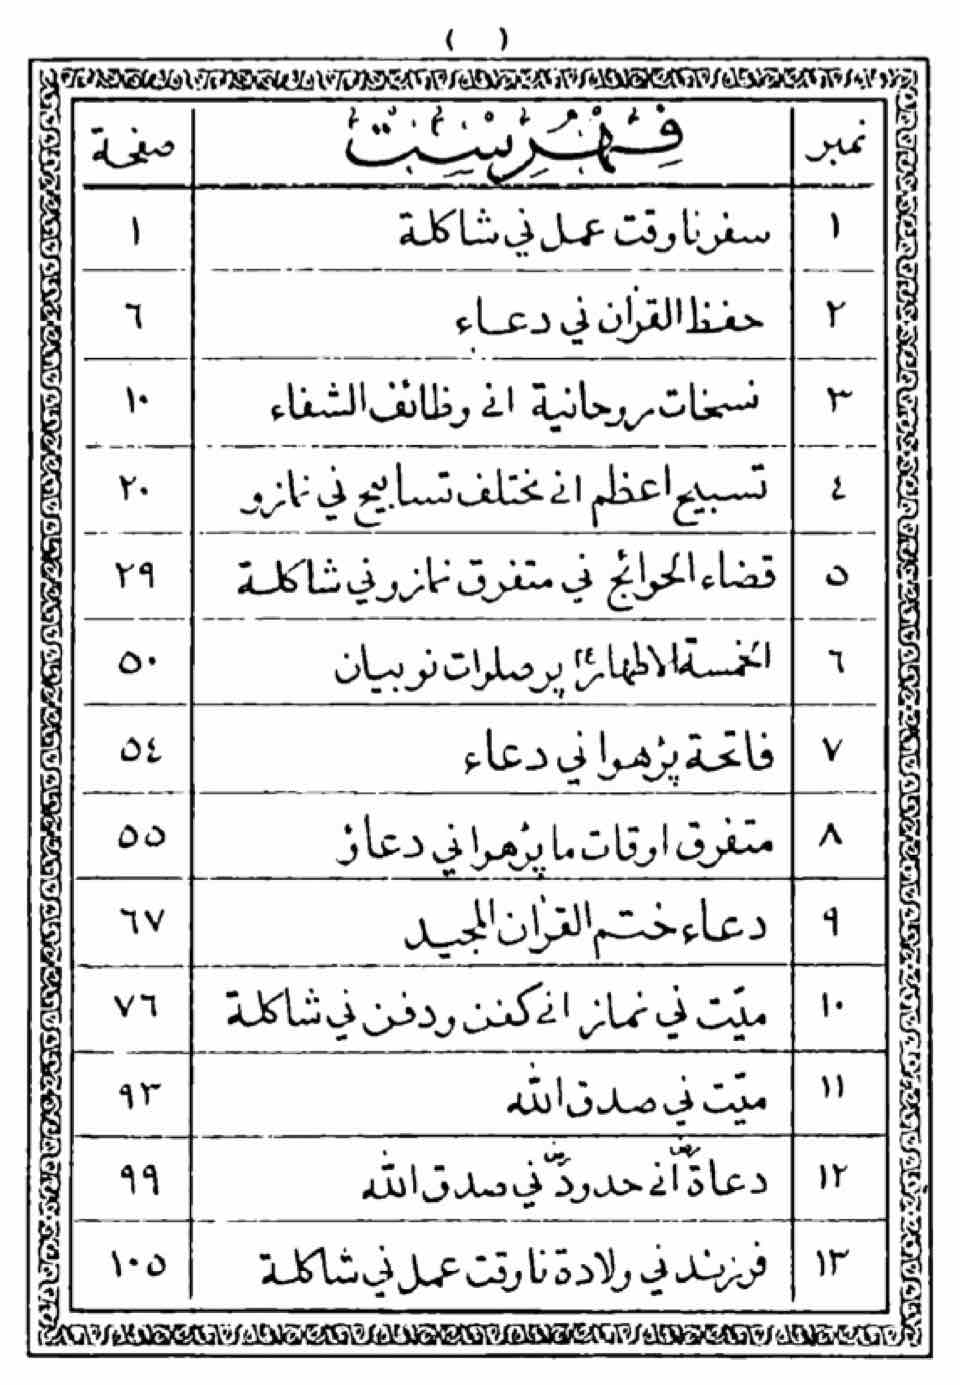 ( )
نمبر فِهْرِسْتْ صفحة
١ سفر نا وقت عمل ني شاكلة ١
٢ حفظ القرٰان ني دعاء ٦
٣ نسخات روحانية انے وظائف الشفاء ١٠
٤ تسبيح اعظم انے مختلف تسابيح ني نمازو ٢٠
٥ قضاء الحوائج ني متفرق نمازو ني شاكلة ٢٩
٦ الخمسة الاطهارؑ پر صلوات نو بيان ٥٠
٧ فاتحة پڑهوا ني دعاء ٥٤
٨ متفرق اوقات ما پڑهوا ني دعاؤ ٥٥
٩ دعاء ختم القرٰان المجيد ٦٧
١٠ ميّت ني نماز انے كفن ودفن ني شاكلة ٧٦
١١ ميّت ني صدق الله ٩٣
١٢ دعاةؓ انے حدودؓ ني صدق الله ٩٩
١٣ فرزند ني ولادة نا وقت عمل ني شاكلة ١٠٥